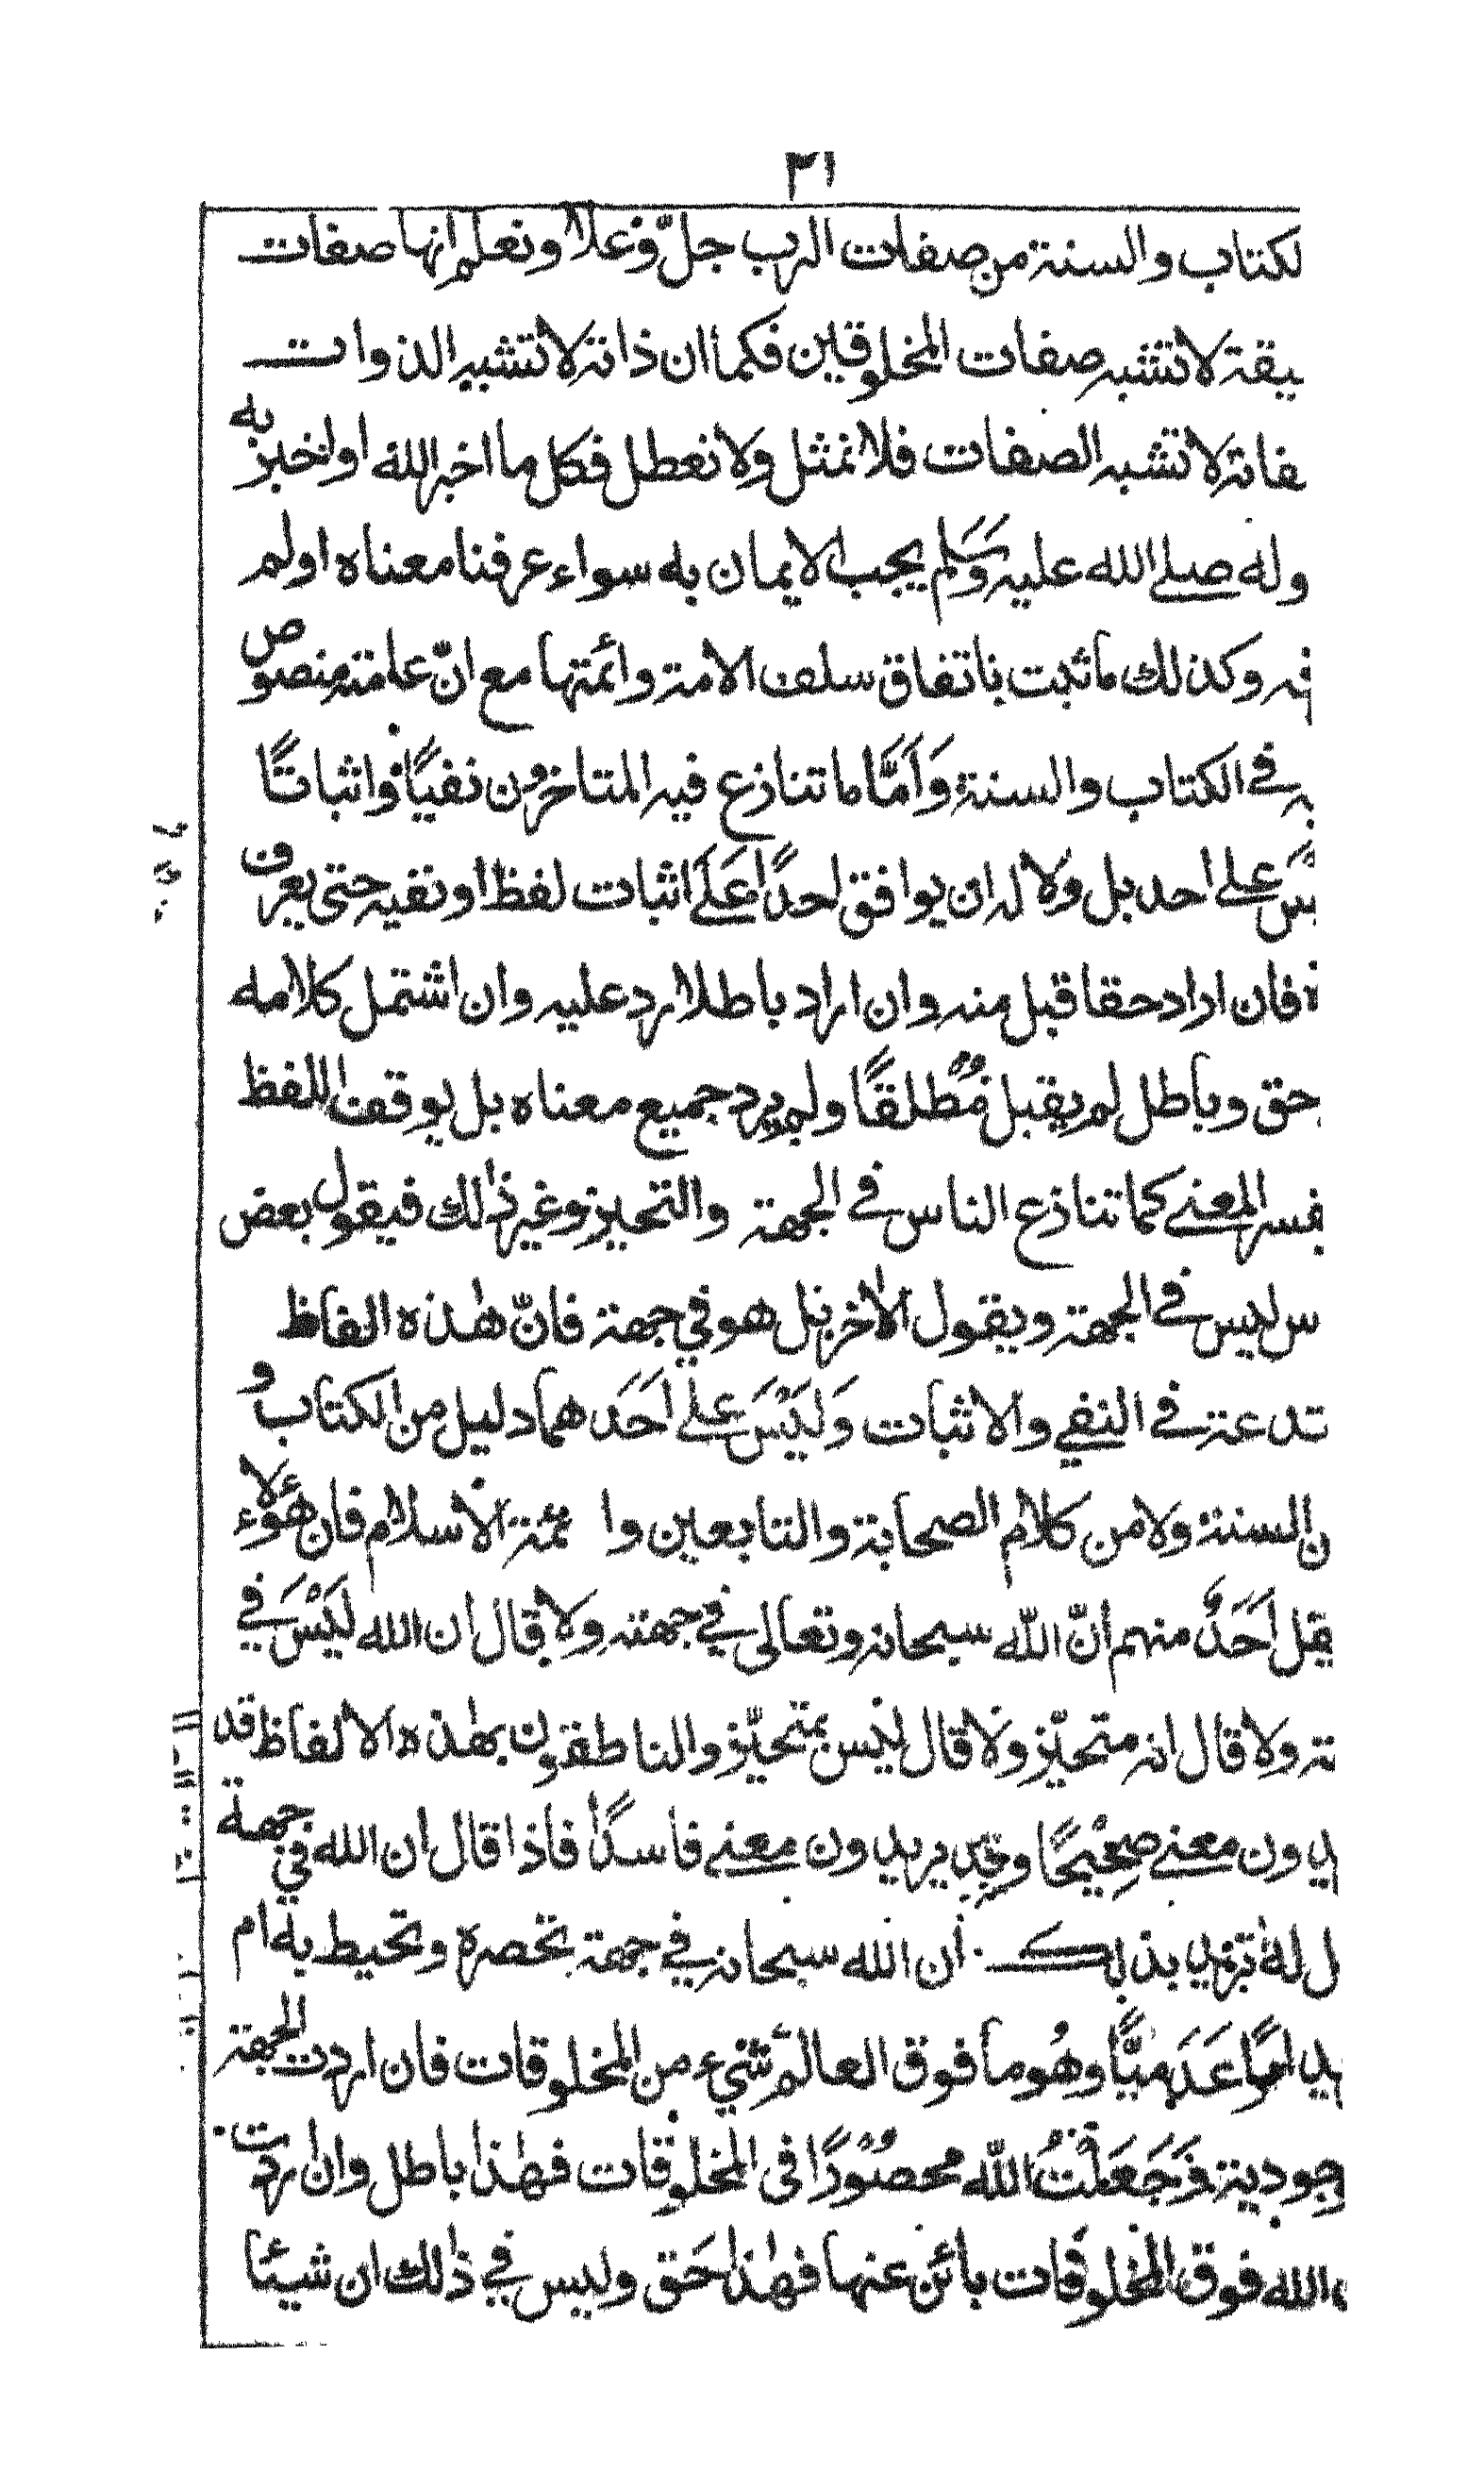 ٣١
لكتاب والسنة من صفات الرب جلّ وعلا ونعلم انها صفات
يقة لا تشبه صفات المخلوقين فكما ان ذاته لا تشبه الذوات
فاته لا تشبه الصفات فلا نمثل ولا نعطل فكل ما اخبر الله او اخبر به
وله صلے الله عليه وسلم يجب الايمان به سواء عرفنا معناه او لم
فه وكذلك ما ثبت باتفاق سلف الامة وائمتها مع انّ عامته منصوص
ه فے الكتاب والسنة وَاَمَّا ما تنازع فيه المتاخرون نفيًا واثباتًا
س علے احد بل ولا له ان يوافق احدًا عَلَے اثبات لفظ او نفيه حتى يعرف
ه فان اراد حقا قبل منه وان اراد باطلا رد عليه وان اشتمل كلامه
حق وباطل لم يقبل مُطلقًا ولم يرد جميع معناه بل يوقف اللفظ
فسر المعنے كما تنازع الناس فے الجهة والتحيز وغير ذٰلك فيقول بعض
س ليس فے الجهة ويقول الاٰخر بل هو في جهة فانّ هٰذه الفاظ
تدعة فے النفي والاثبات وَلَيْسَ علے اَحَدهما دليل من الكتاب و
ن السنة ولا من كلام الصحابة والتابعين وا ئمة الاسلام فان هؤلاء
يقل اَحَدٌ منهم انّ اللّٰه سبحانه وتعالى في جهة ولا قال ان الله لَيْسَ في
ته ولا قال انه متحيّز ولا قال ليس بمتحيّز والناطقون بهٰذه الالفاظ قد
يدون معنے صحِيْحًا وقد يريدون معنے فاسدًا فاذا قال ان الله في جهة
ل له تريد بذلك . ان الله سبحانه في جهة تحصره وتحيط به ام
يد امرًا عَدَميًّا وهُو ما فوق العالم شيء من المخلوقات فان اردت الجهة
وجودية وَجَعَلْتَ اللّٰه محصُوْرًا فى المخلوقات فهٰذا باطل وان اردت
الله فوق المخلوقات بائن عنها فهٰذا حَق وليس في ذٰلك ان شيئا